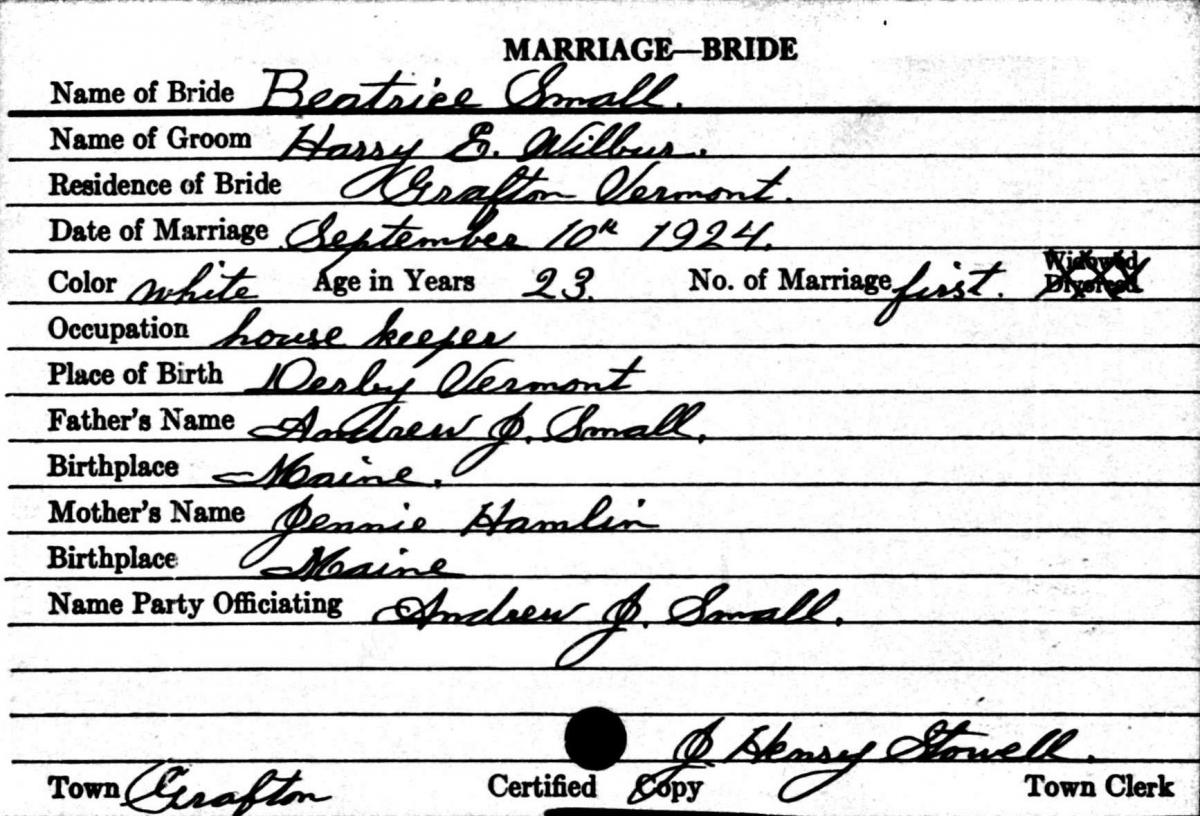 MARRIAGE—BRIDE
Name of Bride Beatrice Small.
Name of Groom Harry E. Wilbur.
Residence of Bride Grafton Vermont.
Date of Marriage September 10th 1924.
Color white Age in Years 23. No. of Marriage first. Widowed Divorced
Occupation house keeper
Place of Birth Derby Vermont
Father's Name Andrew J. Small.
Birthplace Maine.
Mother's Name Jennie Hamlin
Birthplace Maine
Name Party Officiating Andrew J. Small.
J Henry Stowell.
Town Grafton Certified Copy Town Clerk